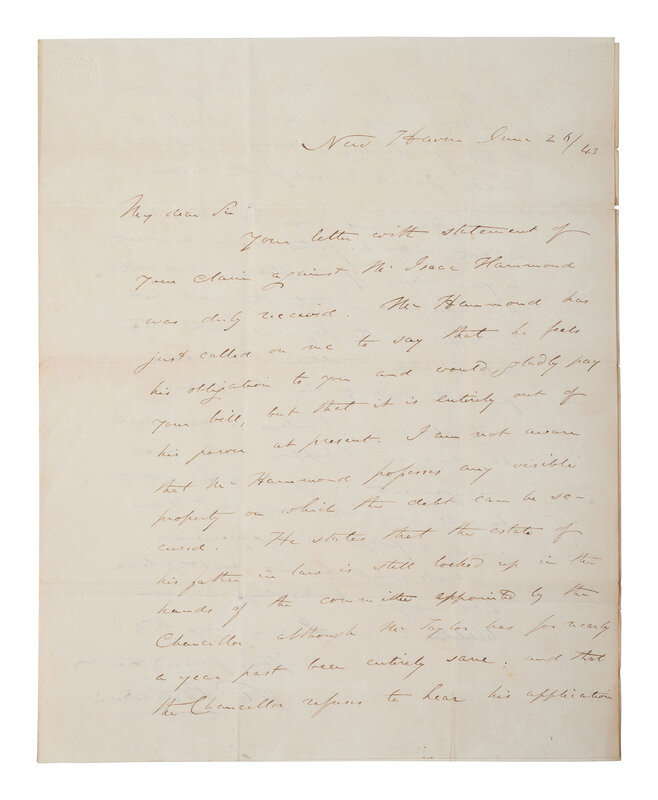 New Haven June 26/43
My dear Sir
Your letter with statement of
your claim against Mr. Isaac Hammond
was duly received. Mr Hammond has
just called on me to say that he feels
his obligation to you and would gladly pay
your bill, but that it is entirely out of
his power at present. I am not aware
that Mr Hammond possesses any visible
property on which the debt can be se-
cured. He states that the estate of
his father in law is still locked up in the
hands of the committee appointed by the
Chancellor, although Mr Taylor has for nearly
a year past been entirely sane; and that
the Chancellor refuses to hear his application